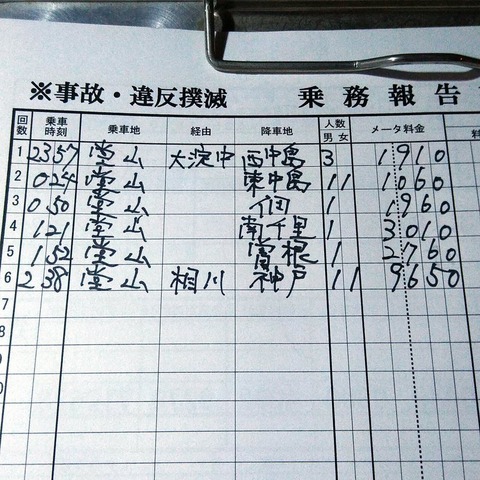 ※事故・違反撲滅 乗務報告
回数 乗車時刻 乗車地 経由 降車地 人数 男 女 メータ料金 料
1 2357 堂山 大淀中 西中島 3 1910
2 024 堂山 東中島 1 1 1060
3 050 堂山 1 1960
4 121 堂山 南千里 1 3010
5 152 堂山 曽根 1 2760
6 238 堂山 相川 神戸 1 1 9650
7
8
9